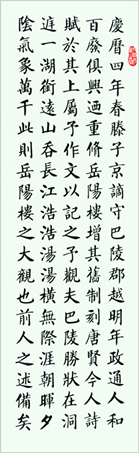 慶曆四年春滕子京謫守巴陵郡越明年政通人和
百廢俱興迺重脩岳陽樓增其舊制刻唐賢今人詩
賦於其上屬予作文以記之予觀夫巴陵勝狀在洞
庭一湖銜遠山吞長江浩浩湯湯橫無際涯朝暉夕
陰氣象萬千此則岳陽樓之大觀也前人之述備矣